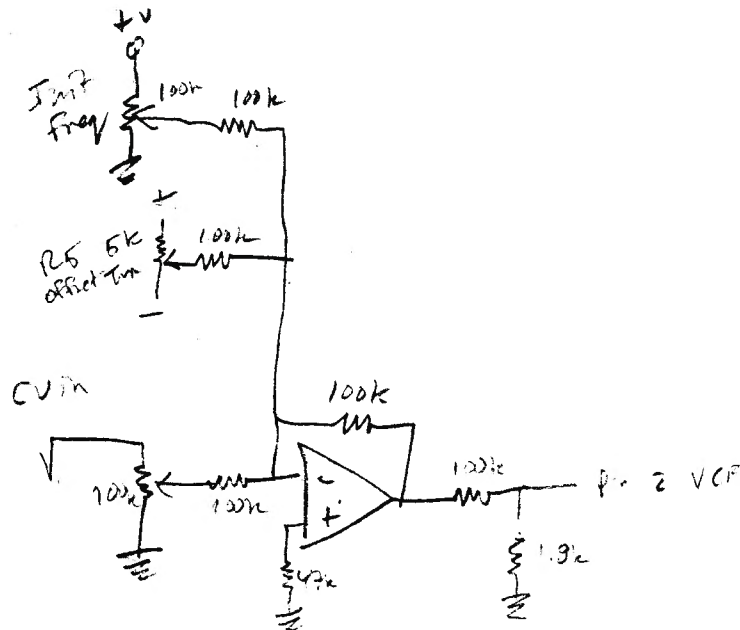 +v
Init
freq
100k
100k
+
R5 5k
offset Trim
100k
-
CV in
100k
100k
100k
-
+
47k
100k
Pin 2 VCF
1.8k